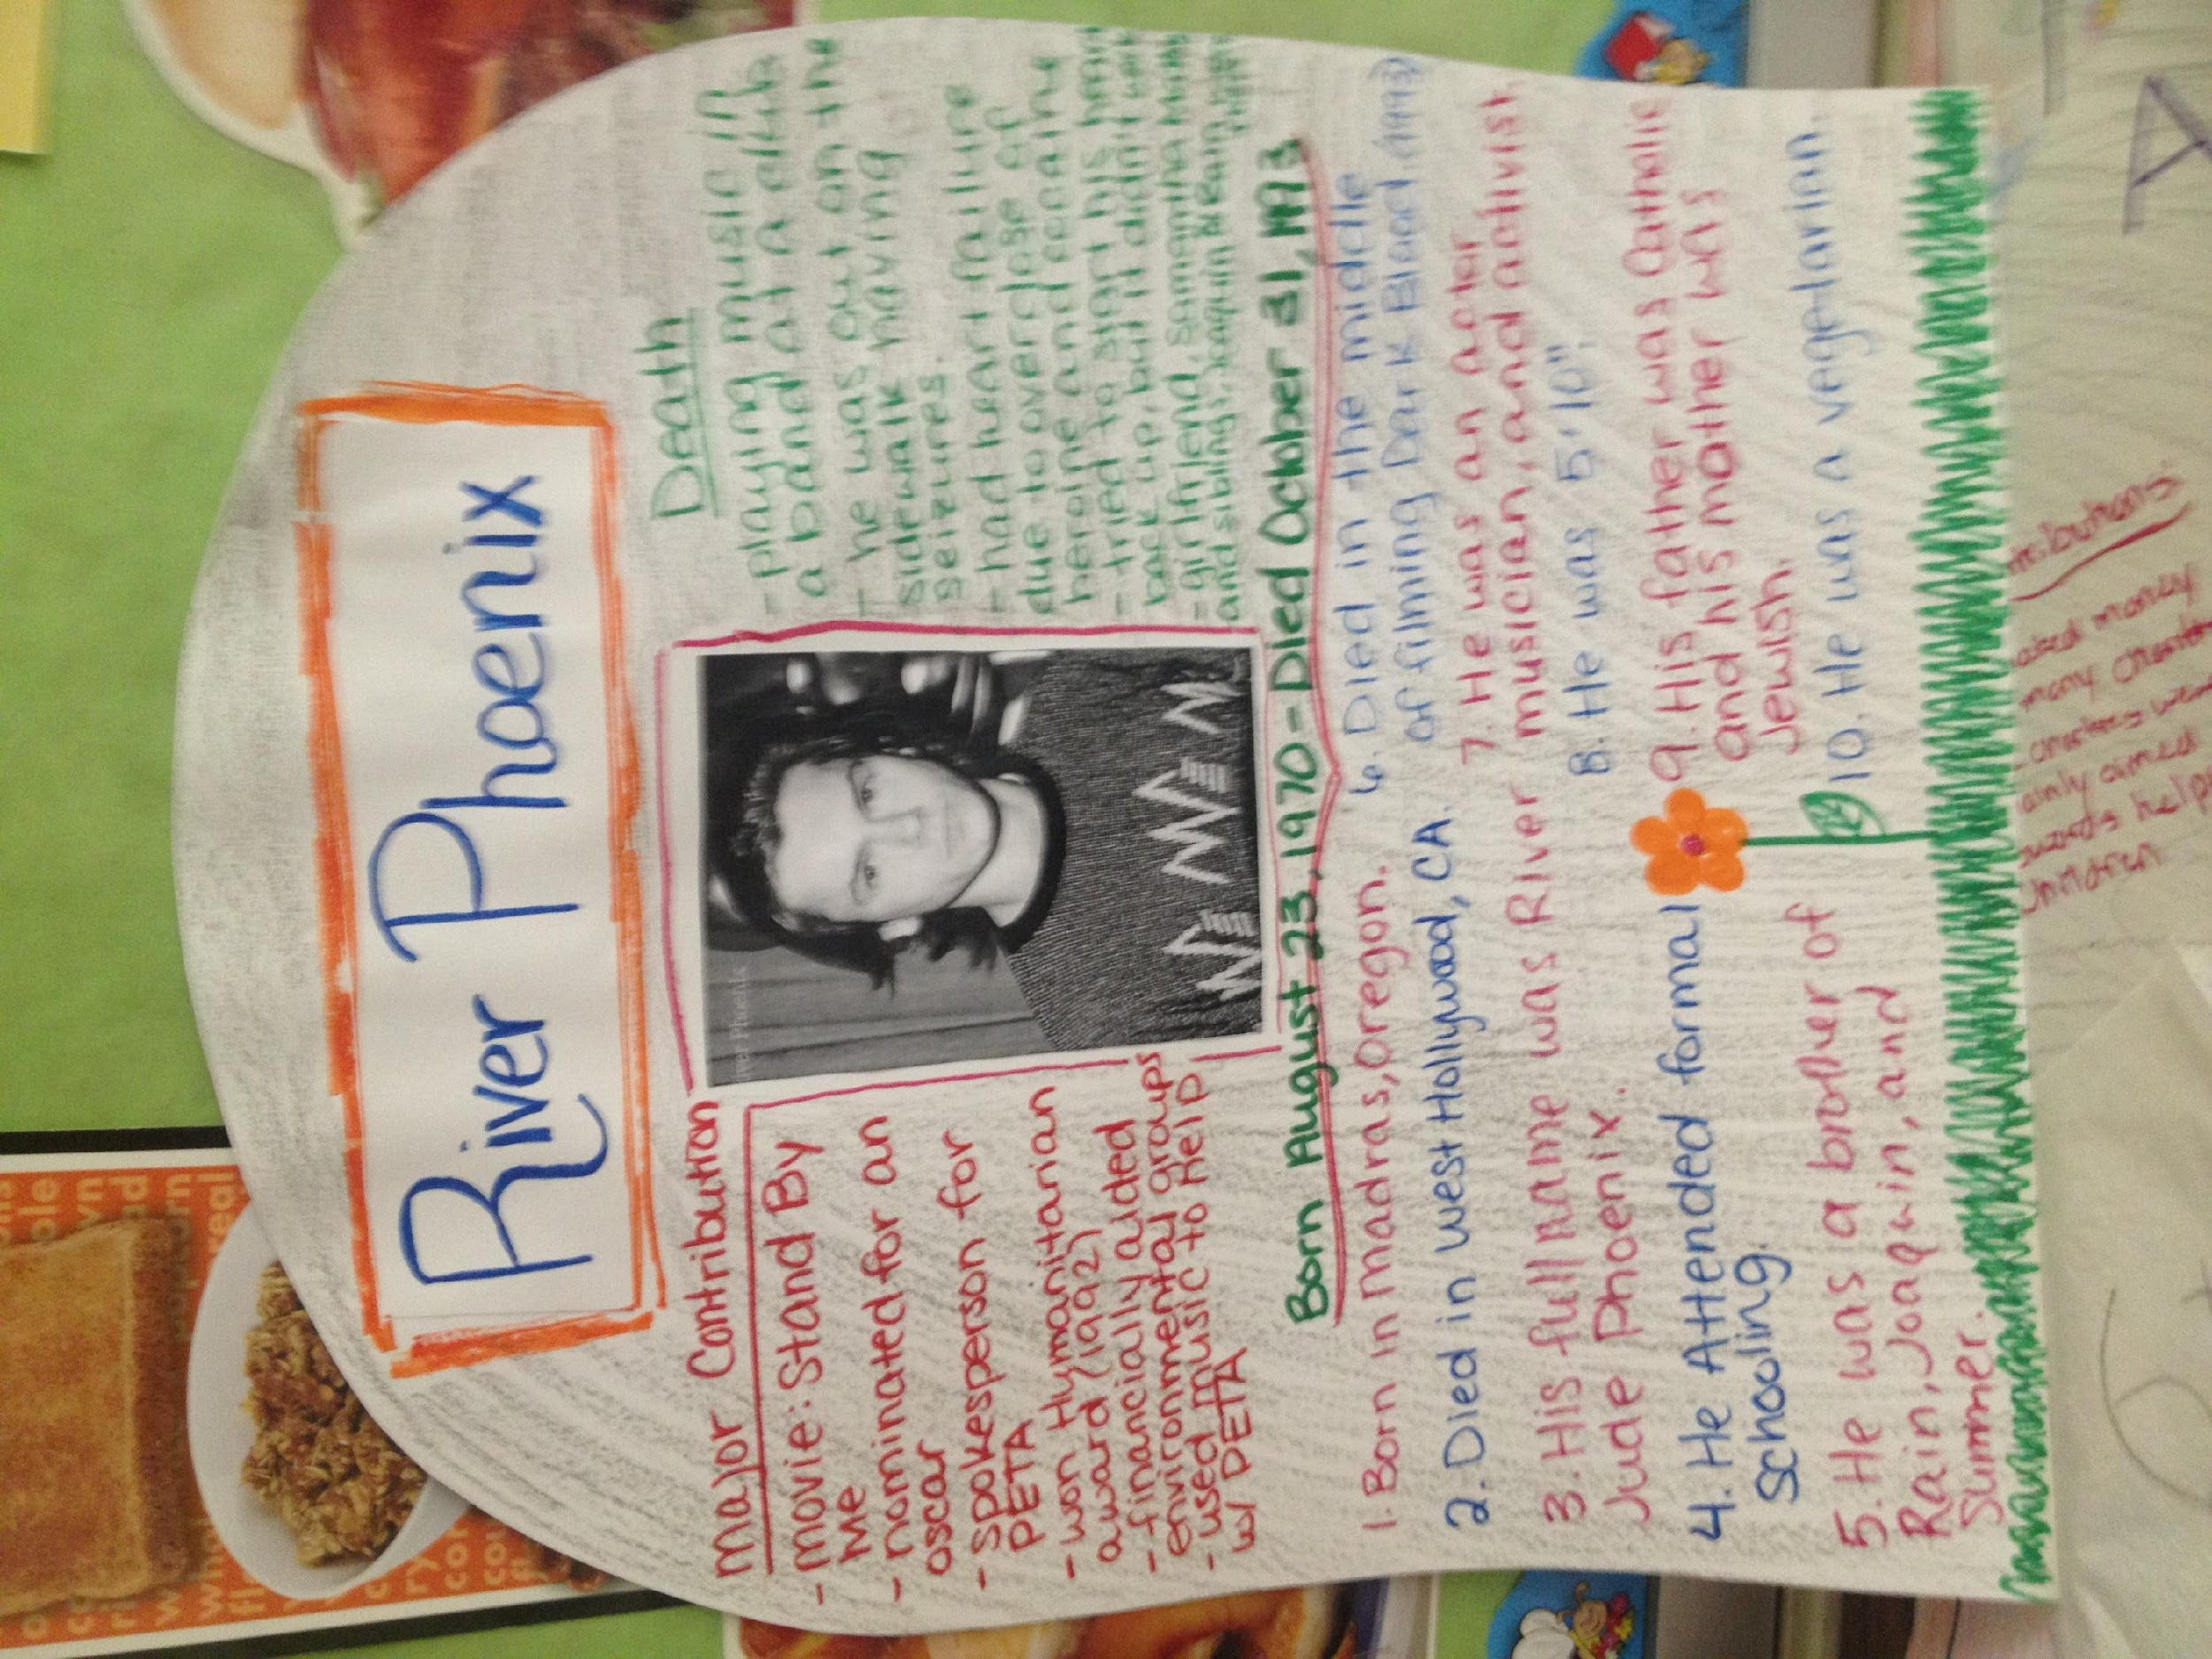 River Phoenix
Major Contribution
- movie: Stand By
Me
- nominated for an
oscar
- spokesperson for
PETA
- won Hymanitarian
award (1992)
- financially aided
environmental groups
- used music to help
w/ PETA
Death
- playing music in
a band at a club
- he was out on the
sidewalk having
seizures.
- had heart failure
due to overdose of
heroine and cocaine
- tried to start his heart
back up, but it didn't work
- girlfriend, Samantha Mathis
and siblings, Joaquin & Rain were
Born August 23, 1970 - Died October 31, 1993
1. Born in madras, Oregon.
2. Died in west Hollywood, CA.
3. His full name was River
Jude Phoenix.
4. He Attended formal
schooling.
5. He was a brother of
Rain, Joaquin, and
Summer.
6. Died in the middle
of filming Dark Blood. (1993)
7. He was an actor
musician, and activist.
8. He was 5'10".
9. His father was Catholic
and his mother was
Jewish.
10. He was a vegetarian.
money
many
children